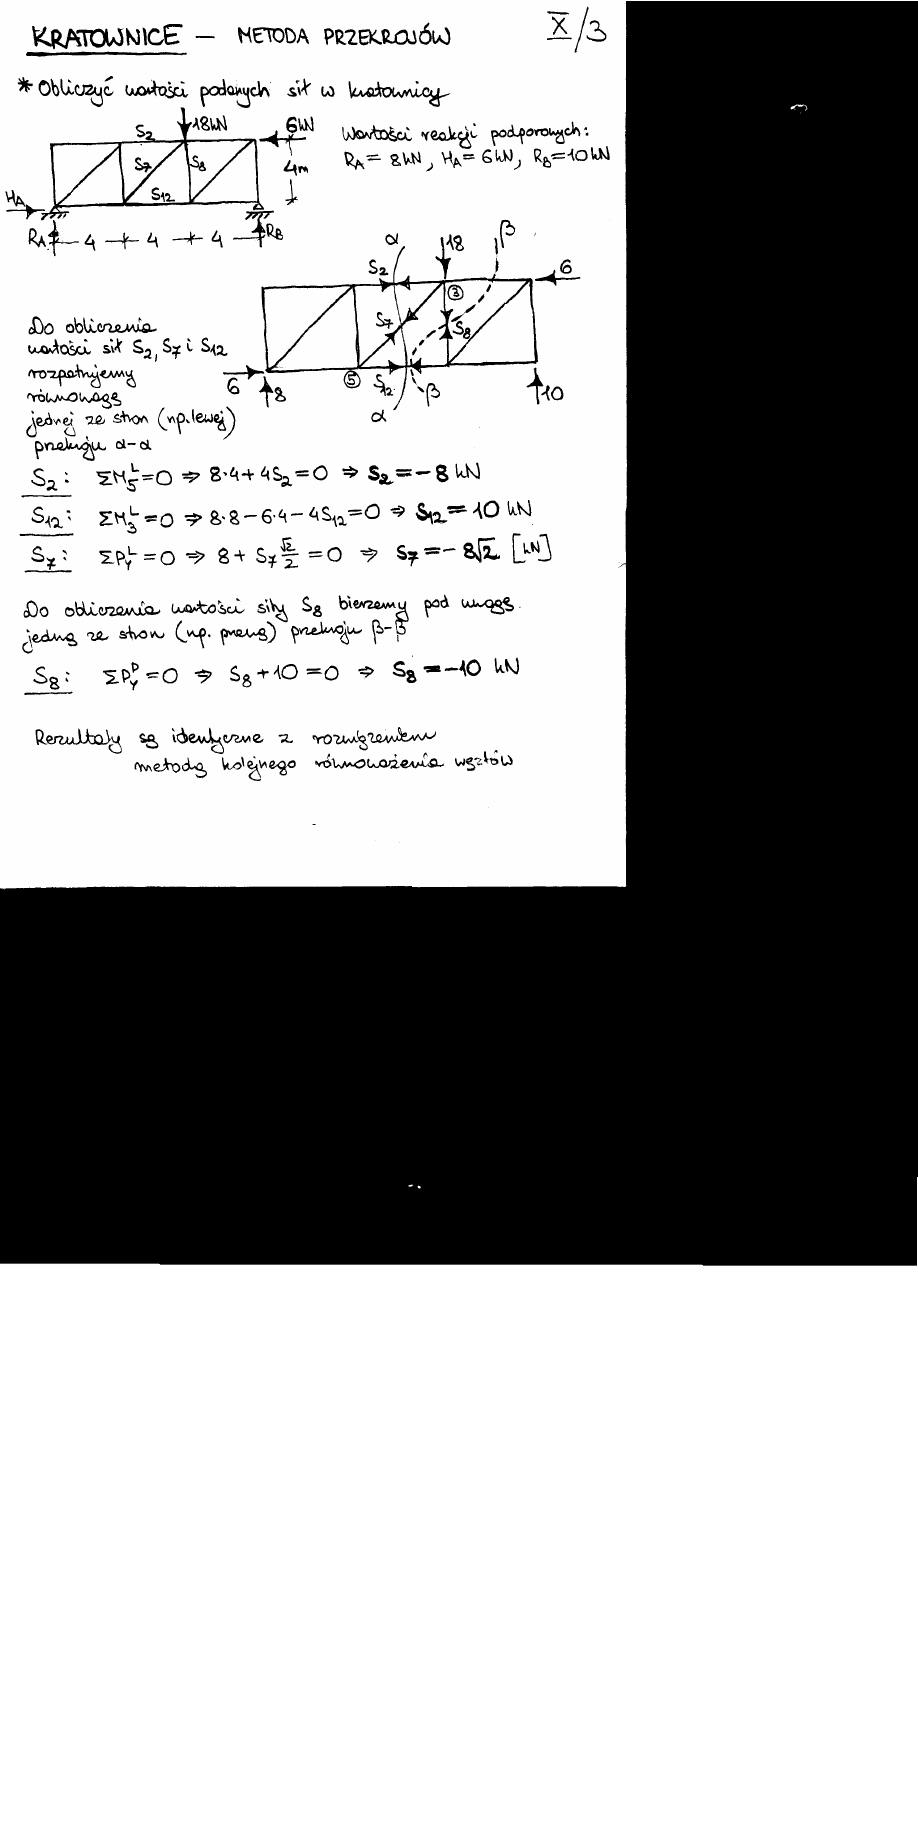 KRATOWNICE – METODA PRZEKROJÓW
X/3
* Obliczyć wartości podanych sił w kratownicy
18kN
6kN
S2
S7
S8
S12
4m
HA
RA
4
4
4
RB
Wartości reakcji podporowych:
RA = 8kN, HA = 6kN, RB = 10kN
α
18
β
6
S2
③
S7
S8
⑤
S12
6
8
α
β
10
Do obliczenia
wartości sił S2, S7 i S12
rozpatrujemy
równowagę
jednej ze stron (np. lewej)
przekroju α-α
S2: ΣM5^L = 0 ⇒ 8·4 + 4S2 = 0 ⇒ S2 = -8 kN
S12: ΣM3^L = 0 ⇒ 8·8 - 6·4 - 4S12 = 0 ⇒ S12 = 10 kN
S7: ΣPY^L = 0 ⇒ 8 + S7 √2/2 = 0 ⇒ S7 = -8√2 [kN]
Do obliczenia wartości siły S8 bierzemy pod uwagę
jedną ze stron (np. prawą) przekroju β-β
S8: ΣPY^P = 0 ⇒ S8 + 10 = 0 ⇒ S8 = -10 kN
Rezultaty są identyczne z rozwiązaniem
metodą kolejnego równoważenia węzłów